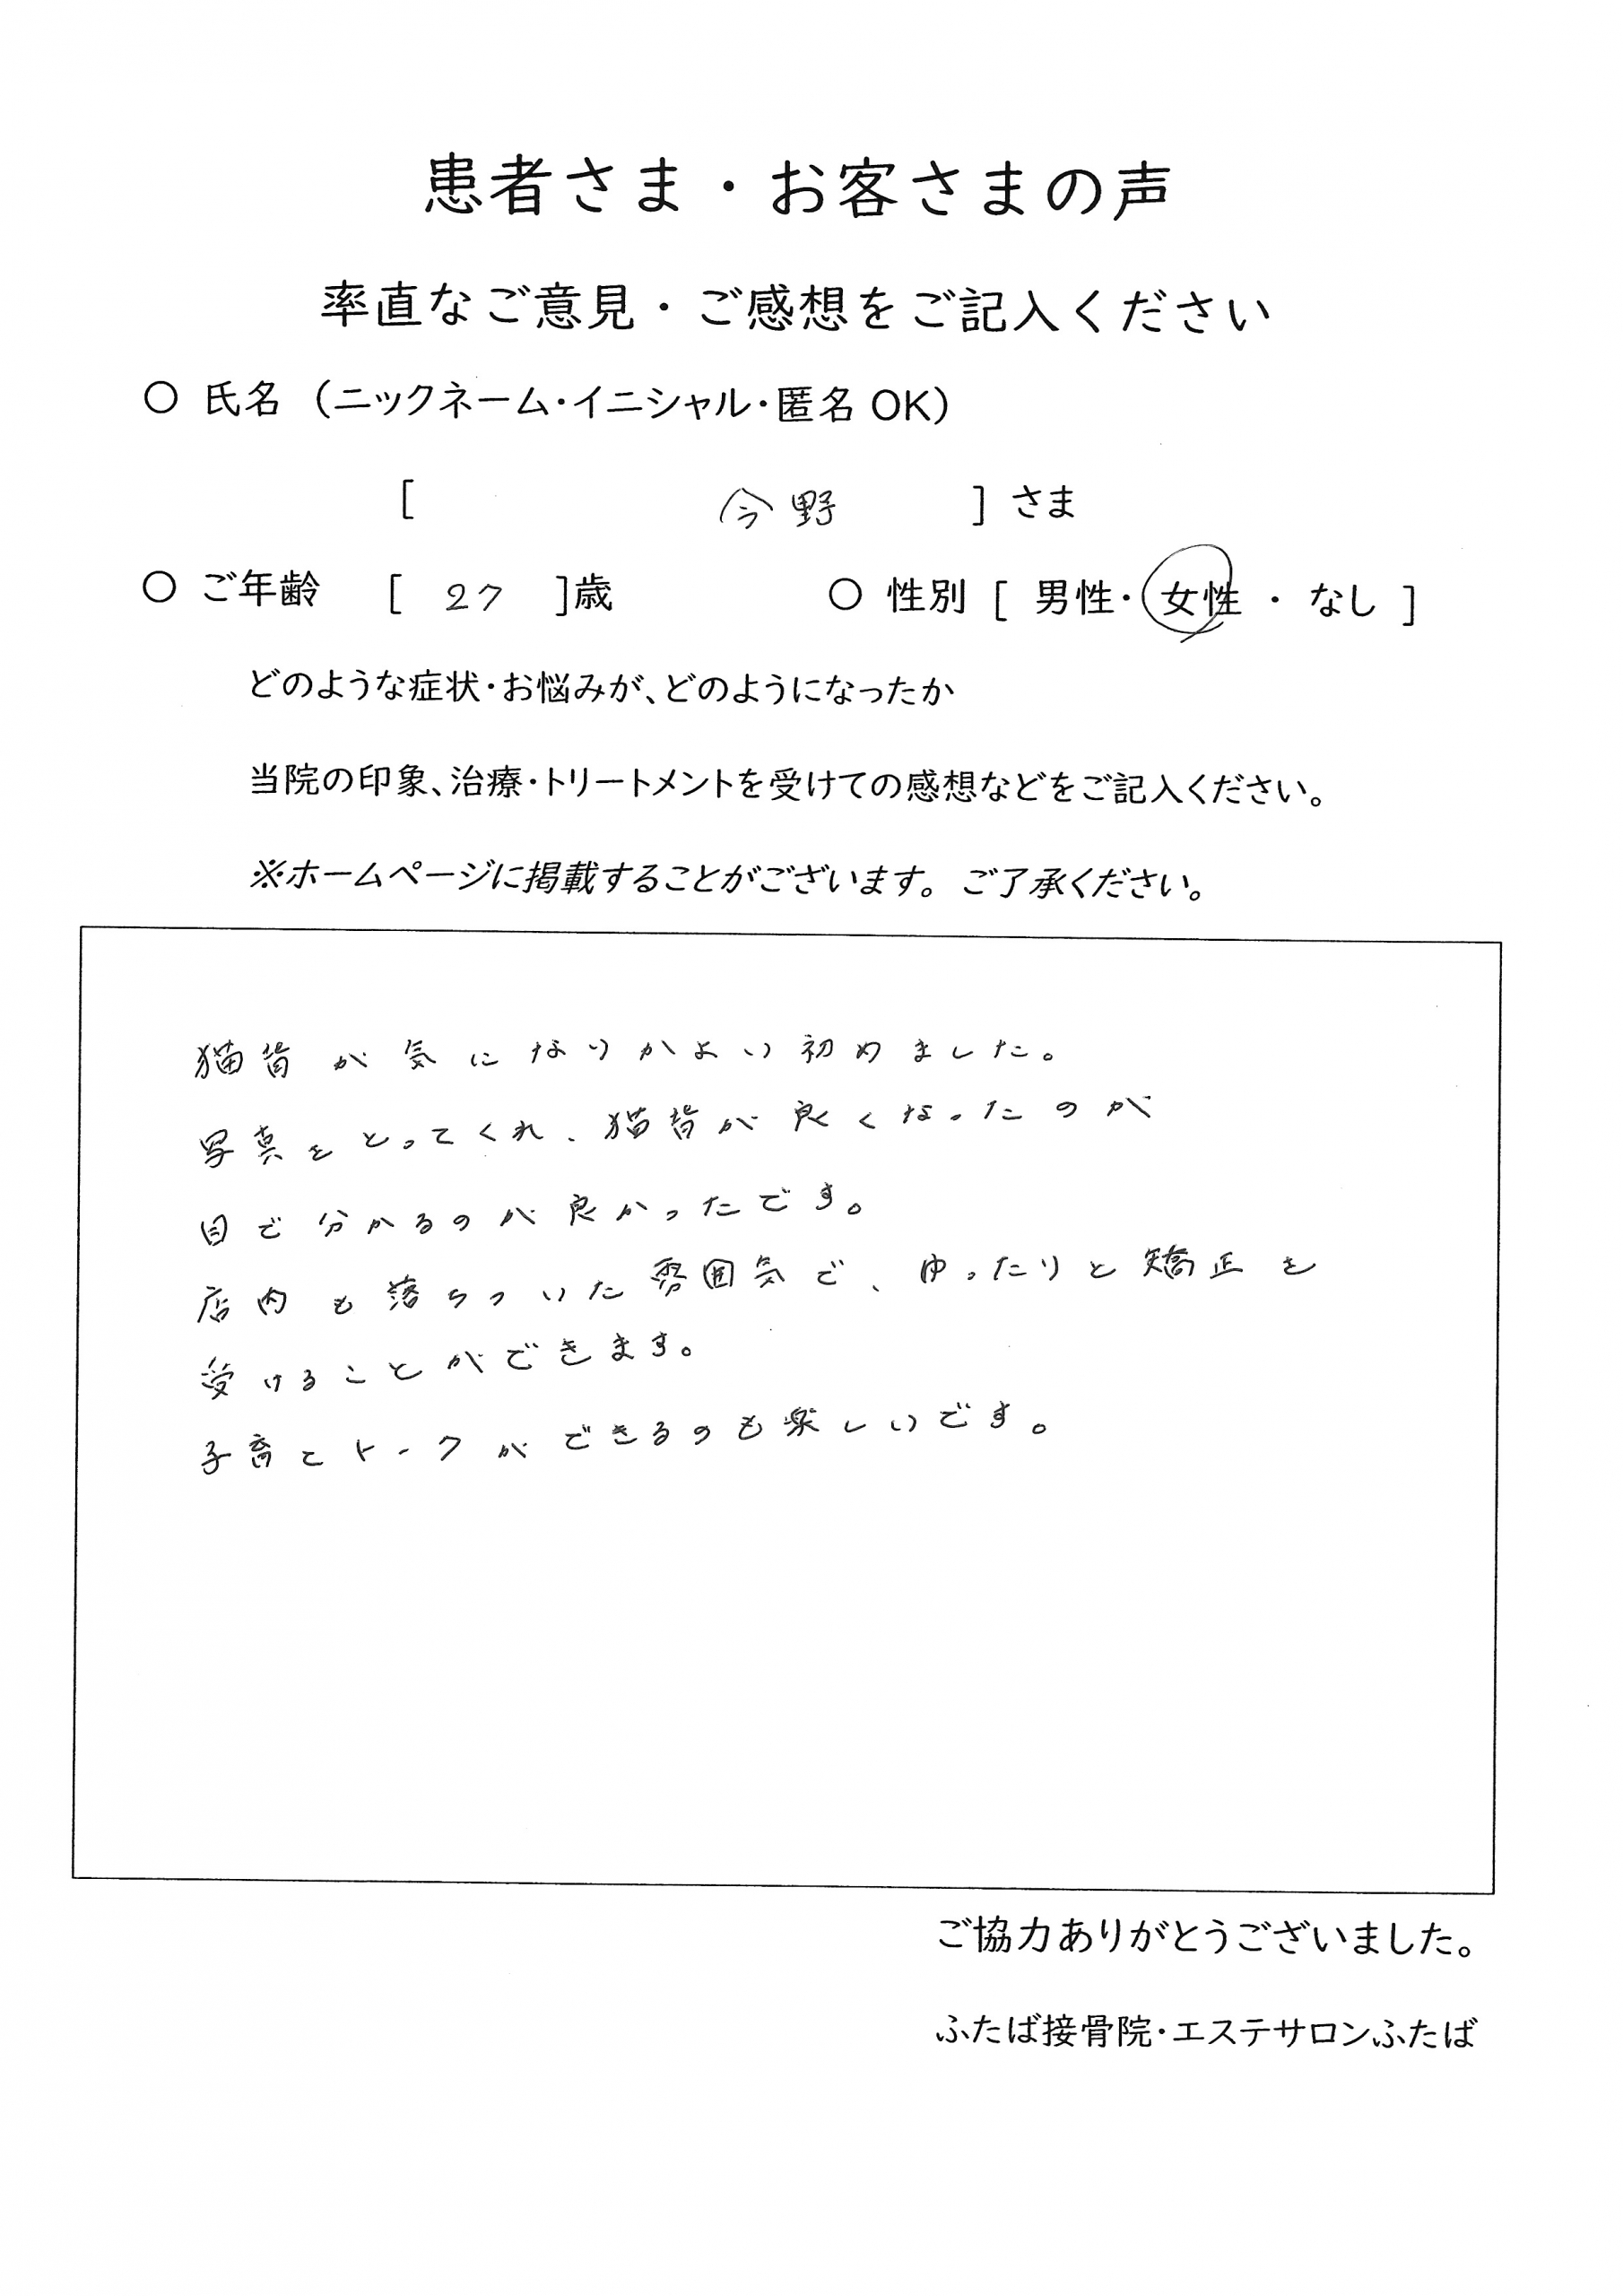 患者さま・お客さまの声
率直なご意見・ご感想をご記入ください
〇 氏名 （ニックネーム・イニシャル・匿名 OK）
[ 今野 ] さま
〇 ご年齢 [ 27 ]歳 〇 性別 [ 男性・女性 ・ なし ]
どのような症状・お悩みが、どのようになったか
当院の印象、治療・トリートメントを受けての感想などをご記入ください。
※ホームページに掲載することがございます。ご了承ください。
猫背が気になりかよい初めました。
写真をとってくれ、猫背が良くなったのが
目で分かるのが良かったです。
店内も落ちついた雰囲気で、ゆったりと矯正を
受けることができます。
子育てトークができるのも楽しいです。
ご協力ありがとうございました。
ふたば接骨院・エステサロンふたば